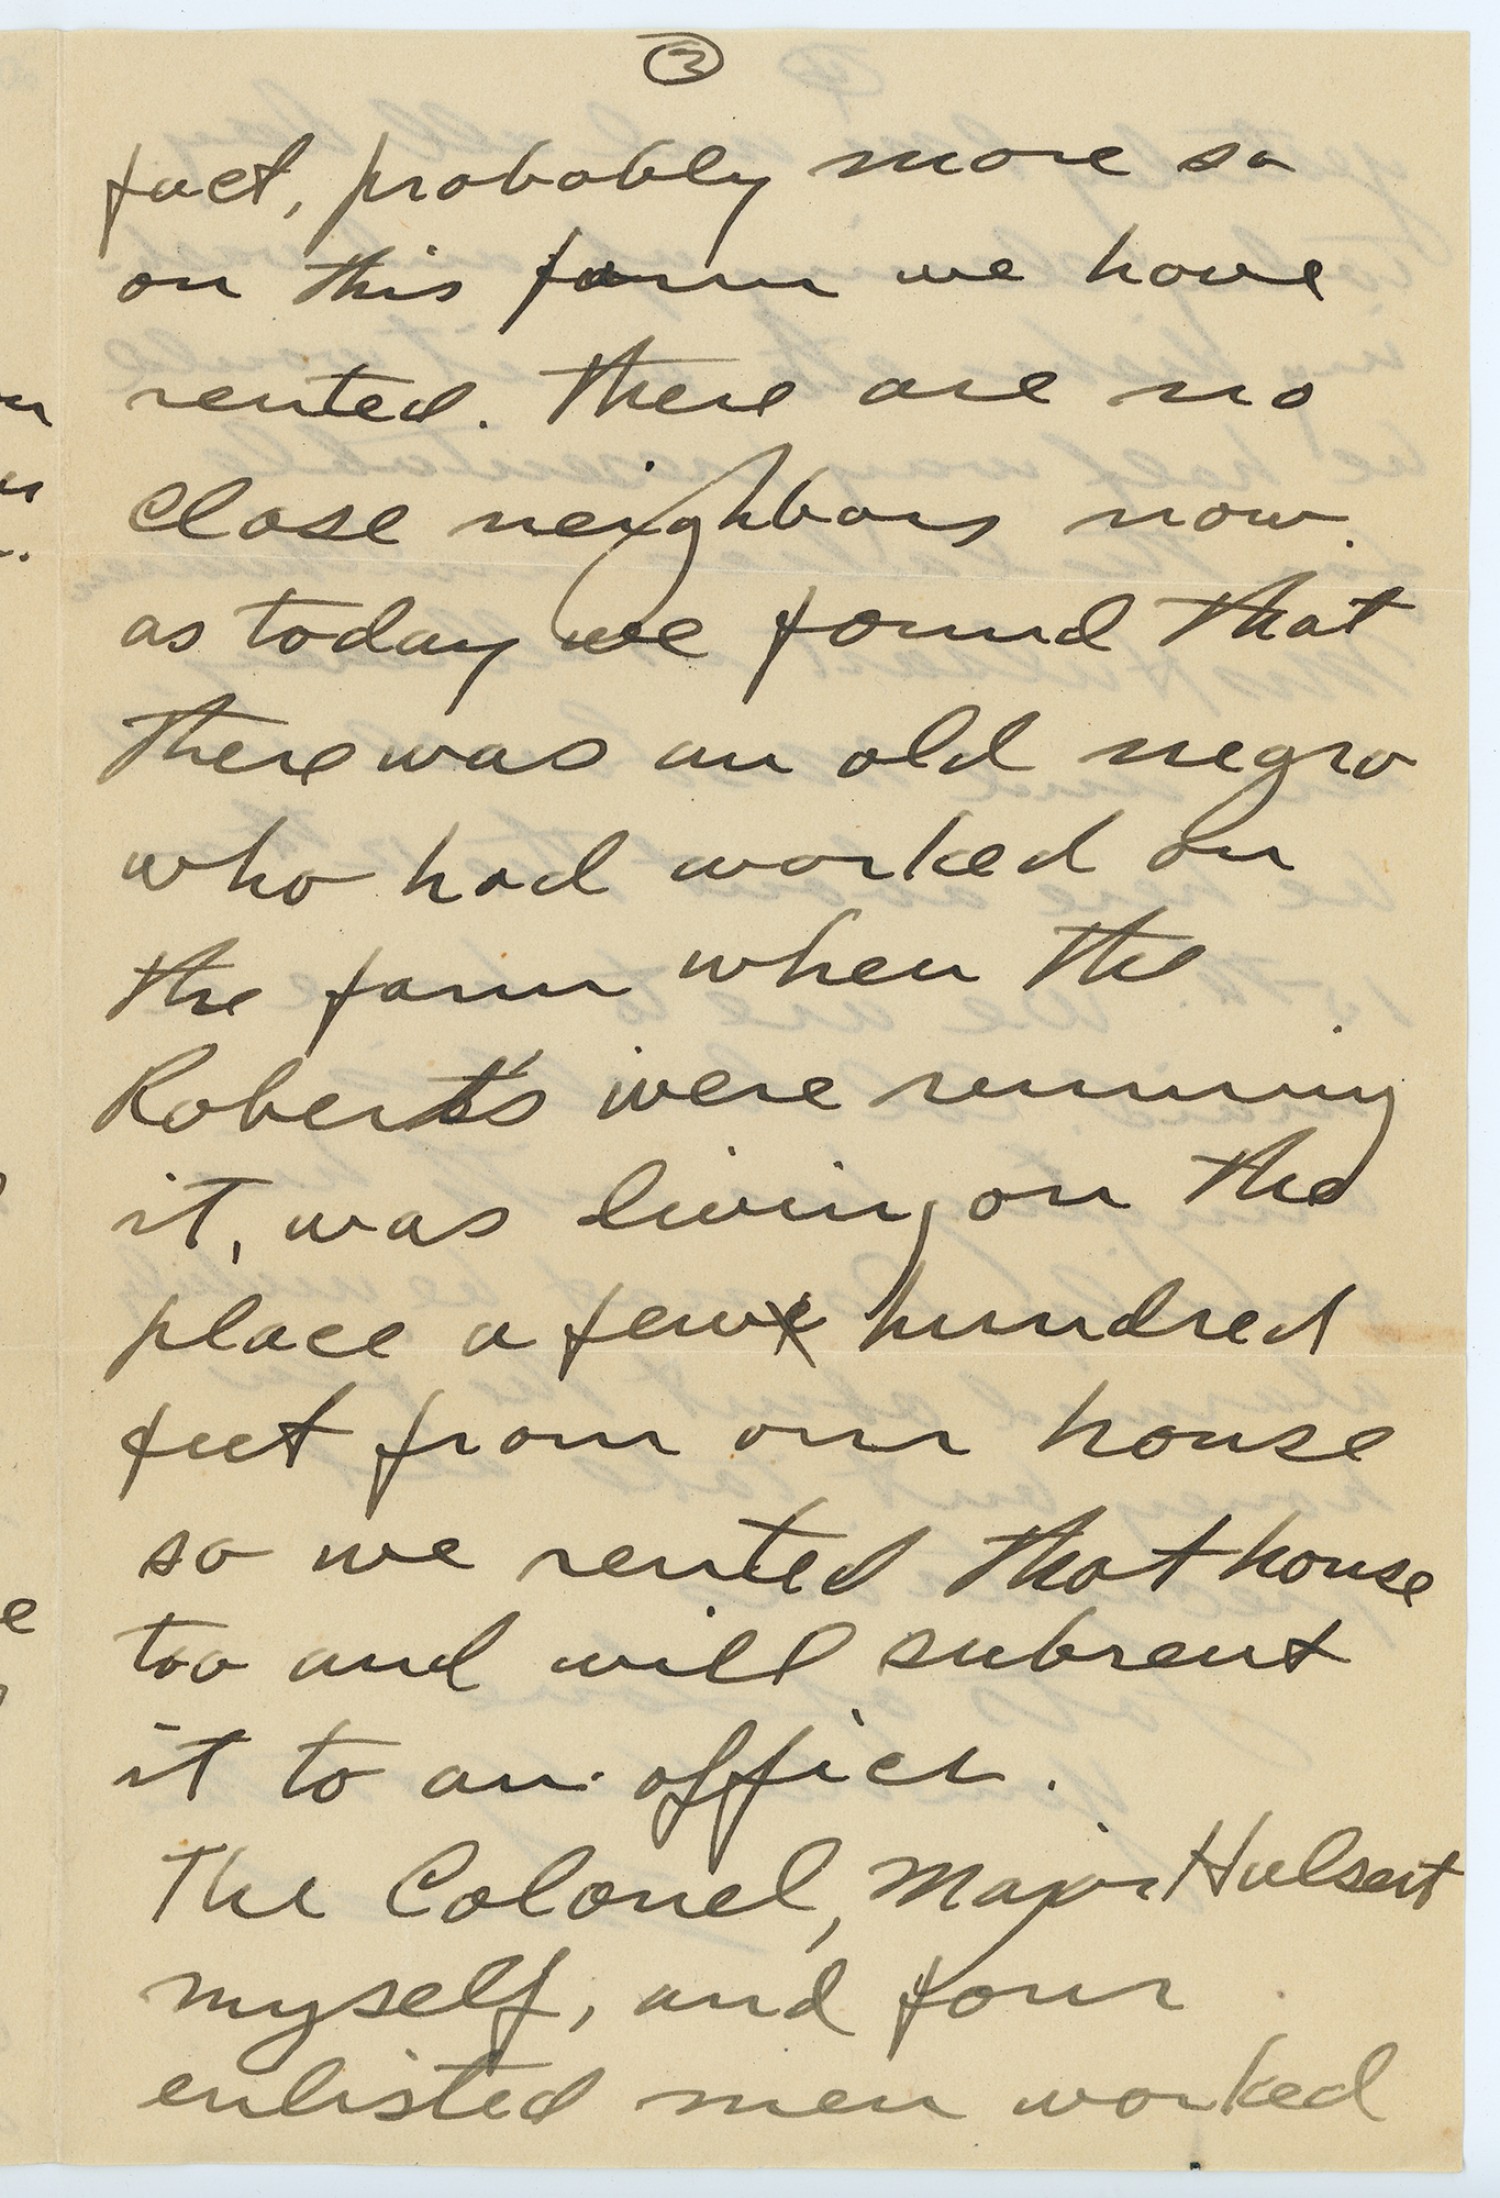 3
fact, probably more so
on this farm we have
rented. There are no
close neighbors now.
as today we found that
there was an old negro
who had worked on
the farm when the
Roberts were running
it, was living on the
place a few hundred
feet from our house
so we rented that house
too and will subrent
it to an officer.
The Colonel, Major Hulsart
myself, and four
enlisted men worked